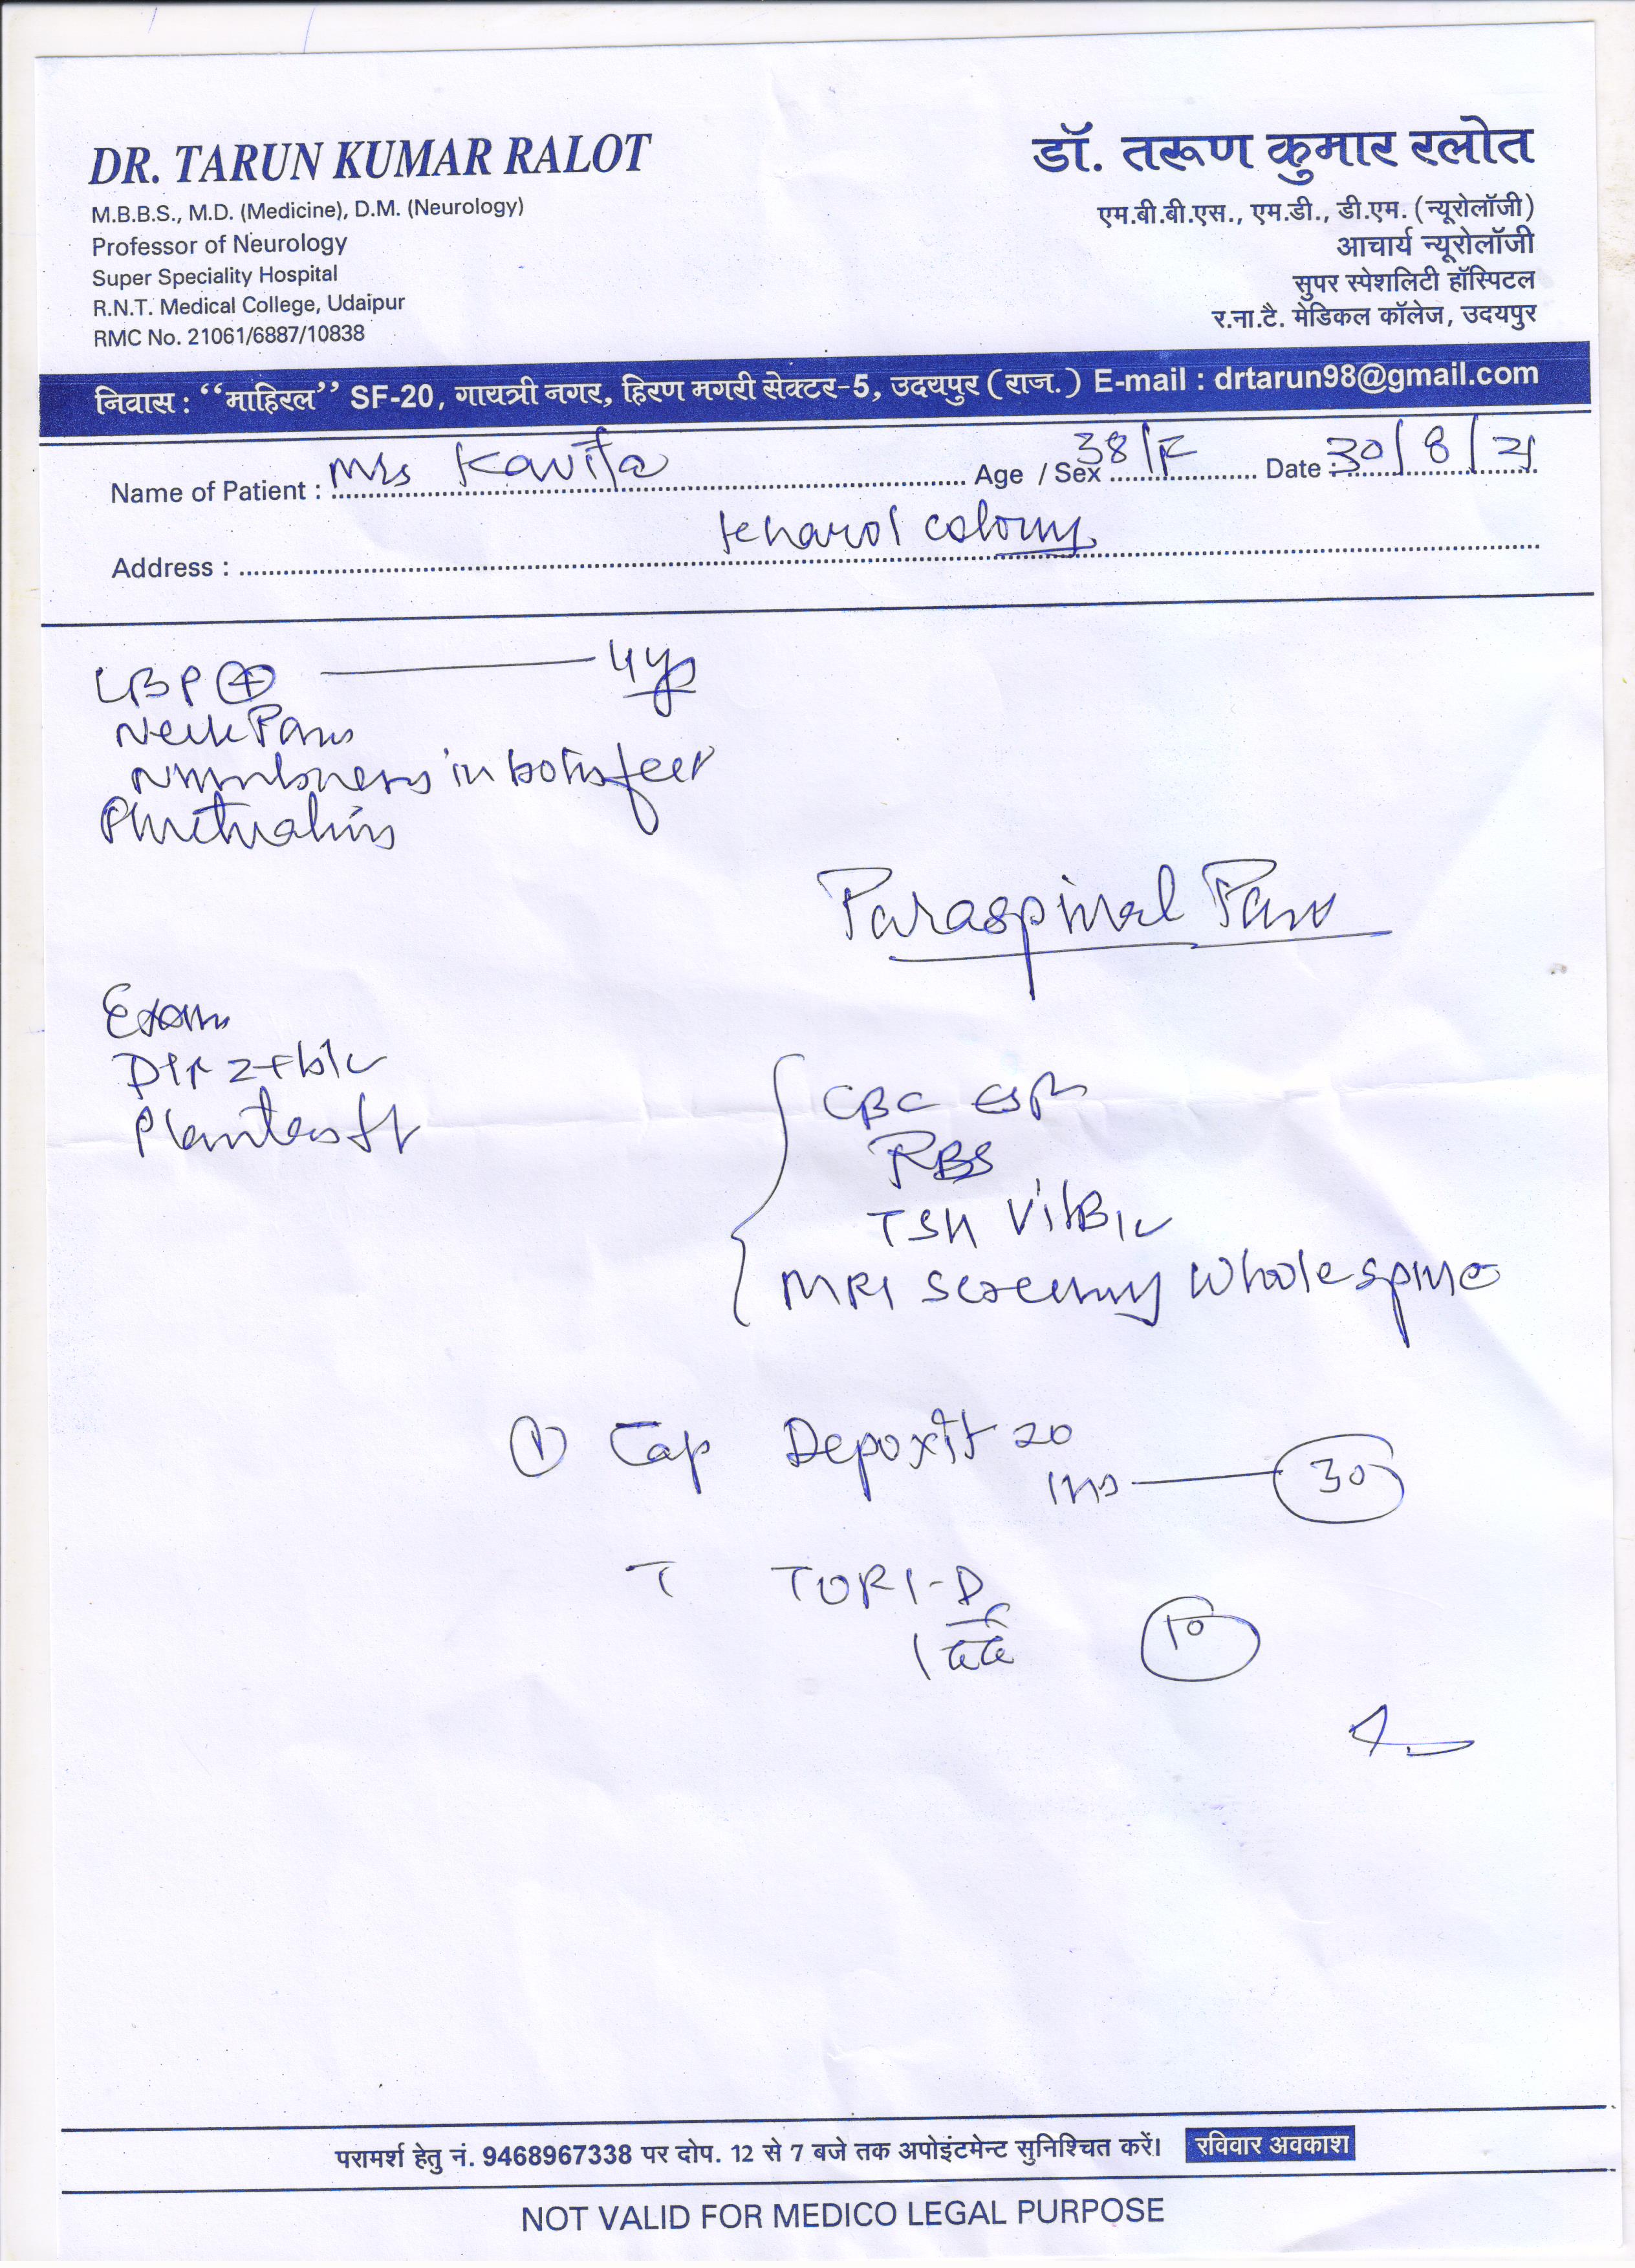 DR. TARUN KUMAR RALOT
M.B.B.S., M.D. (Medicine), D.M. (Neurology)
Professor of Neurology
Super Speciality Hospital
R.N.T. Medical College, Udaipur
RMC No. 21061/6887/10838
डॉ. तरूण कुमार रलोत
एम.बी.बी.एस., एम.डी., डी.एम. (न्यूरोलॉजी)
आचार्य न्यूरोलॉजी
सुपर स्पेशलिटी हॉस्पिटल
र.ना.टै. मेडिकल कॉलेज, उदयपुर
निवास : “माहिरल” SF-20, गायत्री नगर, हिरण मगरी सेक्टर-5, उदयपुर (राज.) E-mail : drtarun98@gmail.com
Name of Patient : Mrs Kavita Age / Sex 38/F Date : 30/8/21
Address : Kharol colony
LBP ⊕ 4 yrs
Neck Pain
Numbness in both feet
Paraspinal Pain
Exam
DTR 2+ b/l
Planters
CBC ESR
RBS
TSH Vit B12
MRI screening whole spine
① Cap Depoxit 20
30
T TORI-D
10
परामर्श हेतु नं. 9468967338 पर दोप. 12 से 7 बजे तक अपोइंटमेन्ट सुनिश्चित करें। रविवार अवकाश
NOT VALID FOR MEDICO LEGAL PURPOSE